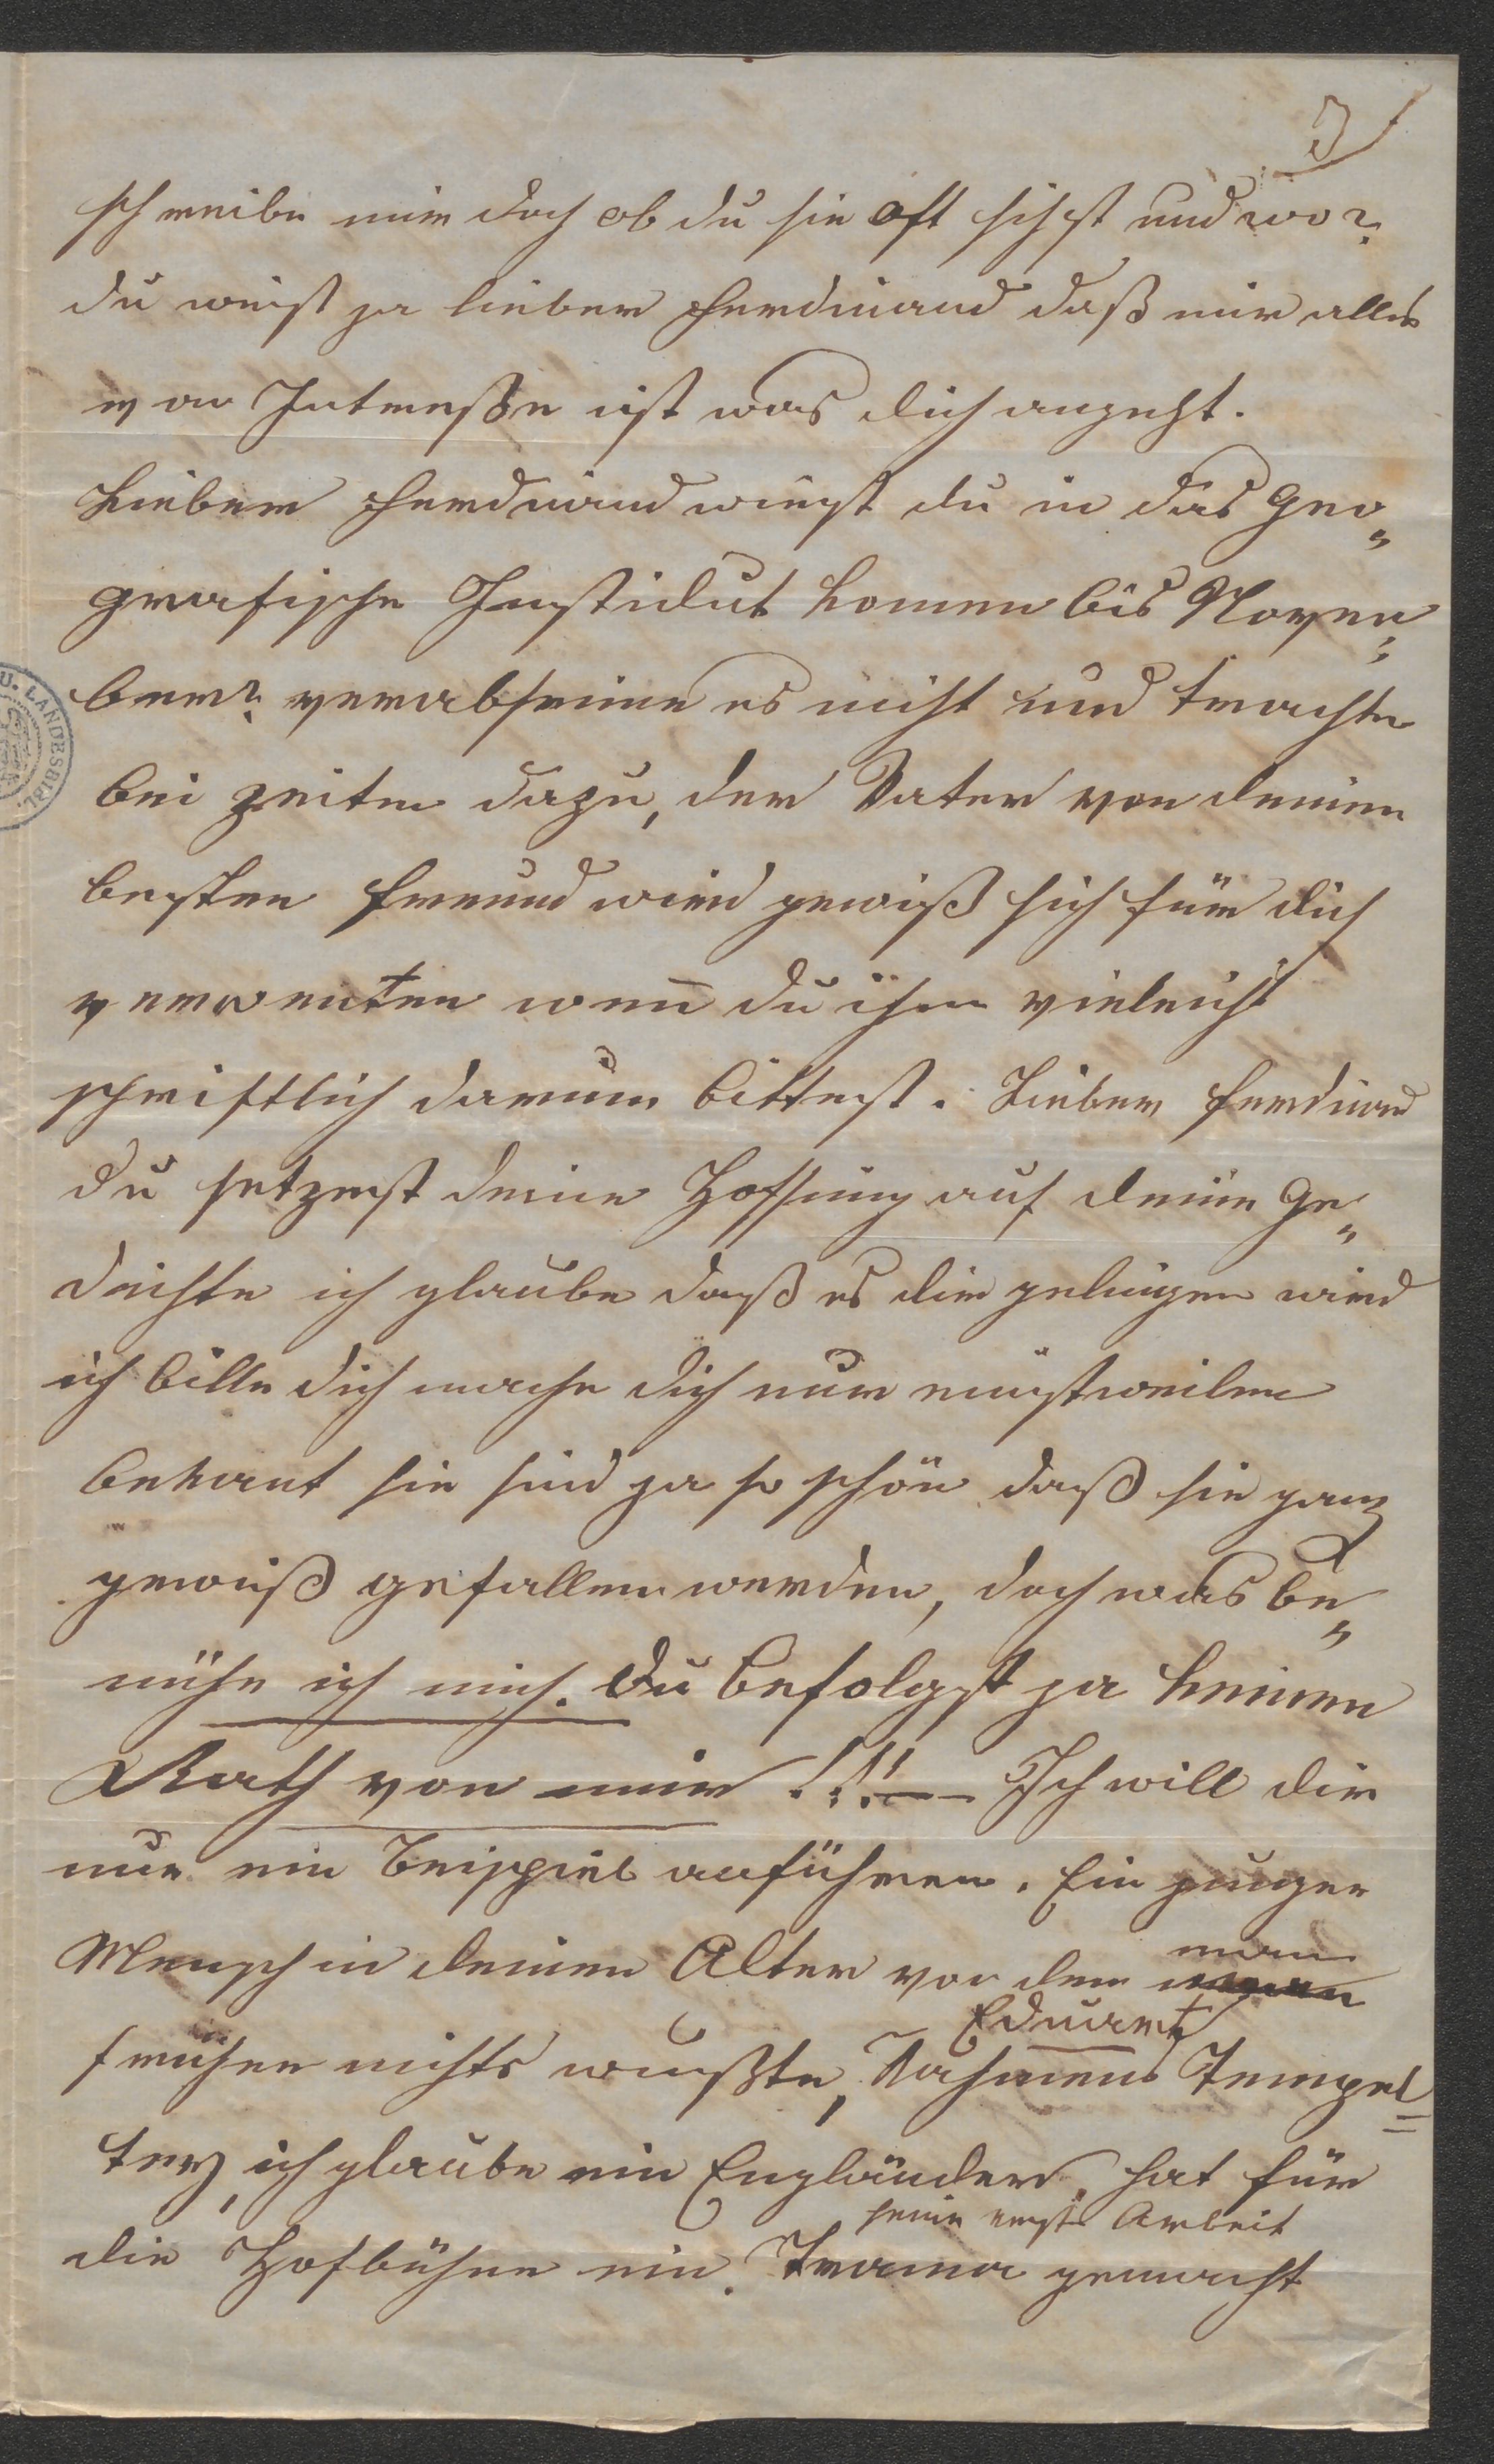 3
schreibe mir doch ob du sie oft sihst und wo?
du weist ja lieber Ferdinand daß mir alles
von Intereße ist was dich angeht.
Lieber Ferdinand wirst du in das Geo„
grafische Instidut komen bis Novem„
ber? verabseime es nicht und trachte
bei zeiten dazu, der Vater von deinen
besten Freund wird gewiß sich für dich
verwenten wen̄ du ihn vieleicht
schriftlich darum bittest. Lieber Ferdinand
du setzest deine Hoffnung auf deine Ge„
dichte ich glaube daß es dir gelingen wird
ich bitte dich mache dich nur einstweilen
bekant sie sind ja so schön daß sie ganz
gewiß gefallen werden, doch was be„
mühe ich mich. Du befolgst ja keinen
Rath von mir !!!— Ich will dir
nur ein Beispiel anführen. Ein junger
Mensch in deinen Alter von den
man
Eduart
früher nichts wußte, Nahmens Tempel=
tey, ich glaube ein Engländer, hat für
seine erste Arbeit
die Hofbühne ein Trama gemacht
U. LANDESBIBL.